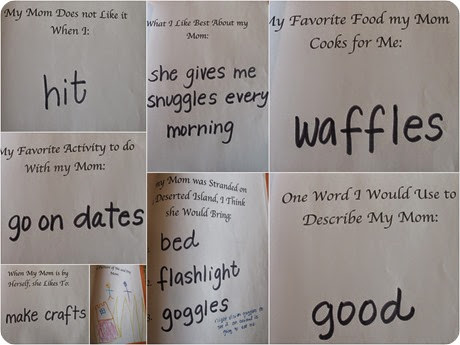 My Mom Does not Like it
When I:
hit
What I Like Best About my
Mom:
she gives me
snuggles every
morning
My Favorite Food my Mom
Cooks for Me:
waffles
My Favorite Activity to do
With my Mom:
go on dates
When My Mom is by
Herself, she Likes To:
make crafts
my Mom was Stranded on
Deserted Island, I Think
she Would Bring:
bed
flashlight
goggles
One Word I Would Use to
Describe My Mom:
good